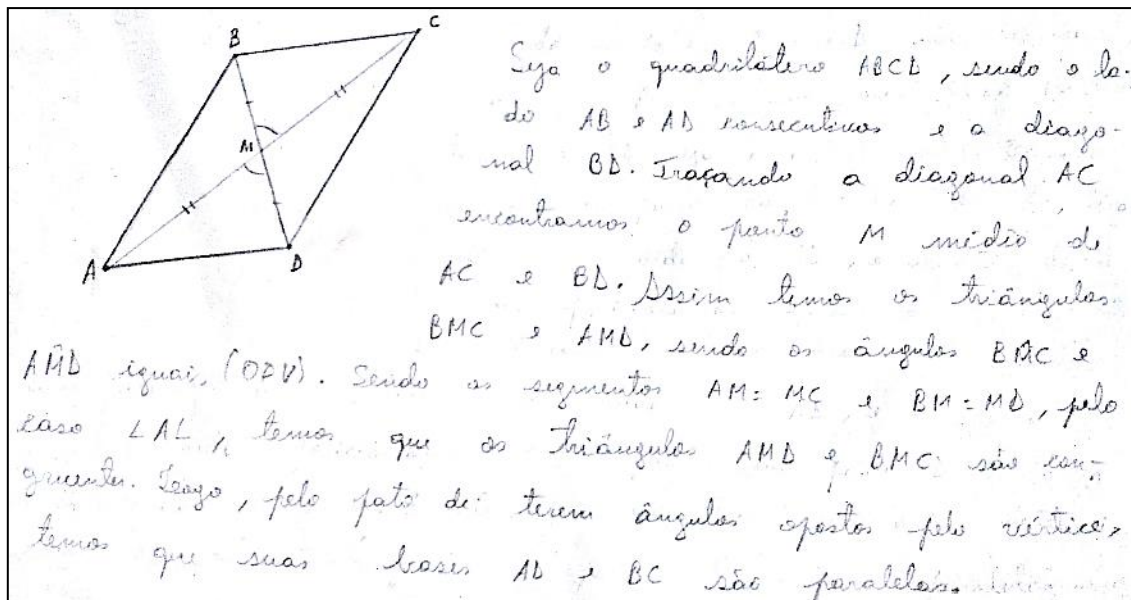 B
C
M
A
D
Seja o quadrilátero ABCD, sendo o la-
do AB e AD consecutivos e a diago-
nal BD. Traçando a diagonal AC
encontramos o ponto M médio de
AC e BD. Assim temos os triângulos
BMC e AMD, sendo os ângulos BM̂C e
AM̂D iguai, (OPV). Sendo os segmentos AM = MC e BM = MD, pelo
caso LAL, temos que os triângulos AMD e BMC são con-
gruentes. Logo, pelo fato de terem ângulos opostos pelo vértice,
temos que suas bases AD e BC são paralelas.